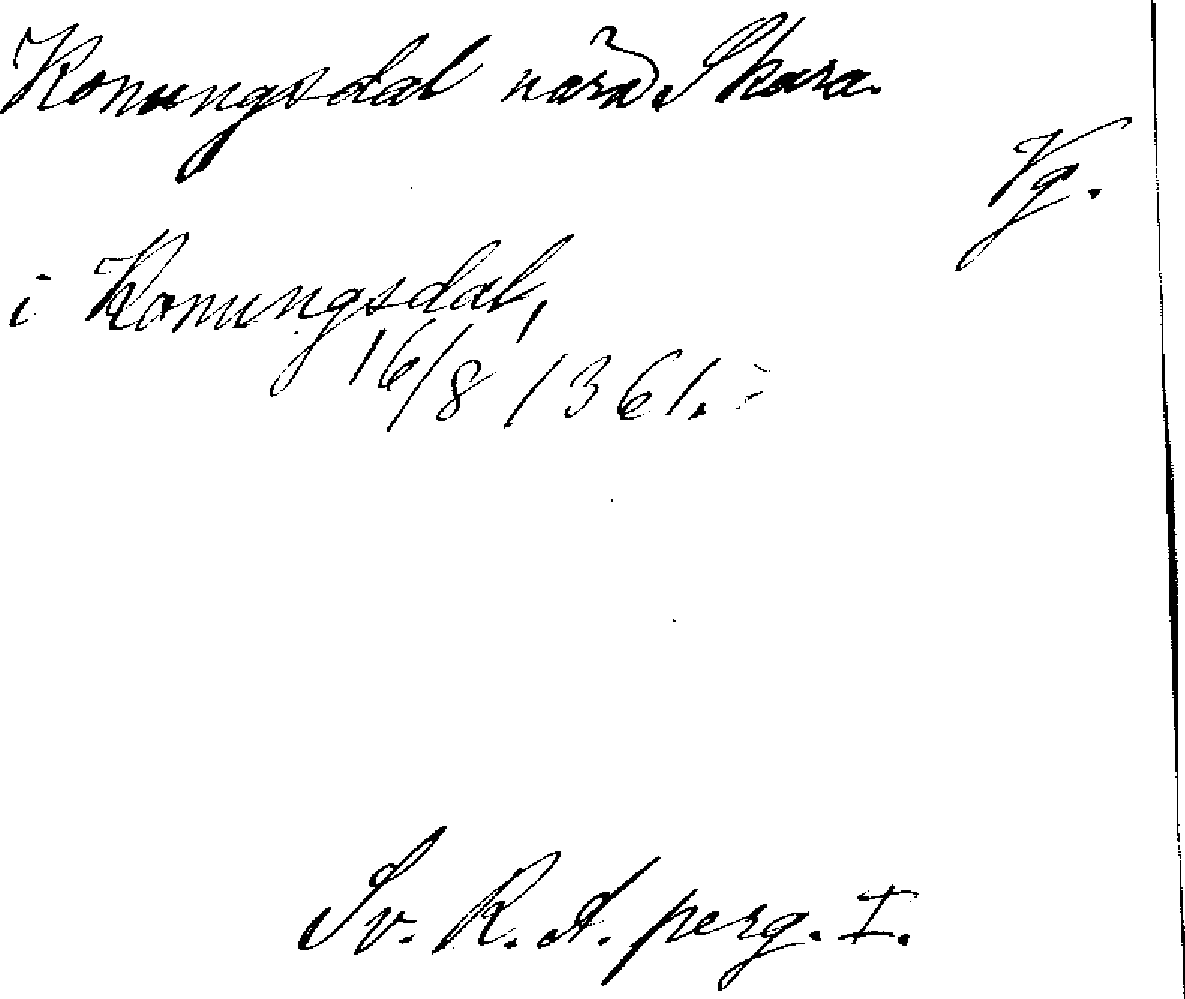 Konungsdal nära Skara.
Vg.
i Konungsdal,
16/8 1361.
Sv. R. A. perg. I.